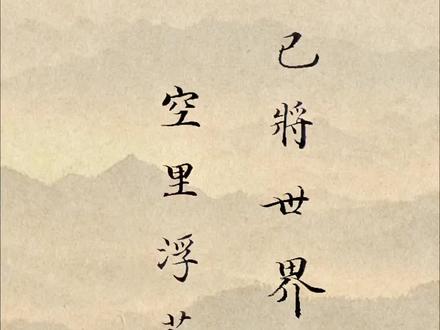 已將世界
空里浮